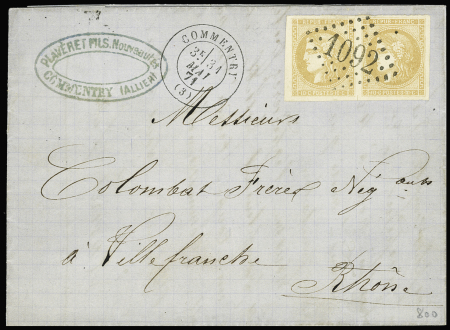 PLAVERET FILS, Nouveautés
COMMENTRY (ALLIER)
COMMENTRY
3E 31
MAI
71
(3)
REPUB FRANC REPUB FRANC
1092
Messieurs
Colombat Frères Négociants
à Villefranche
Rhône
800